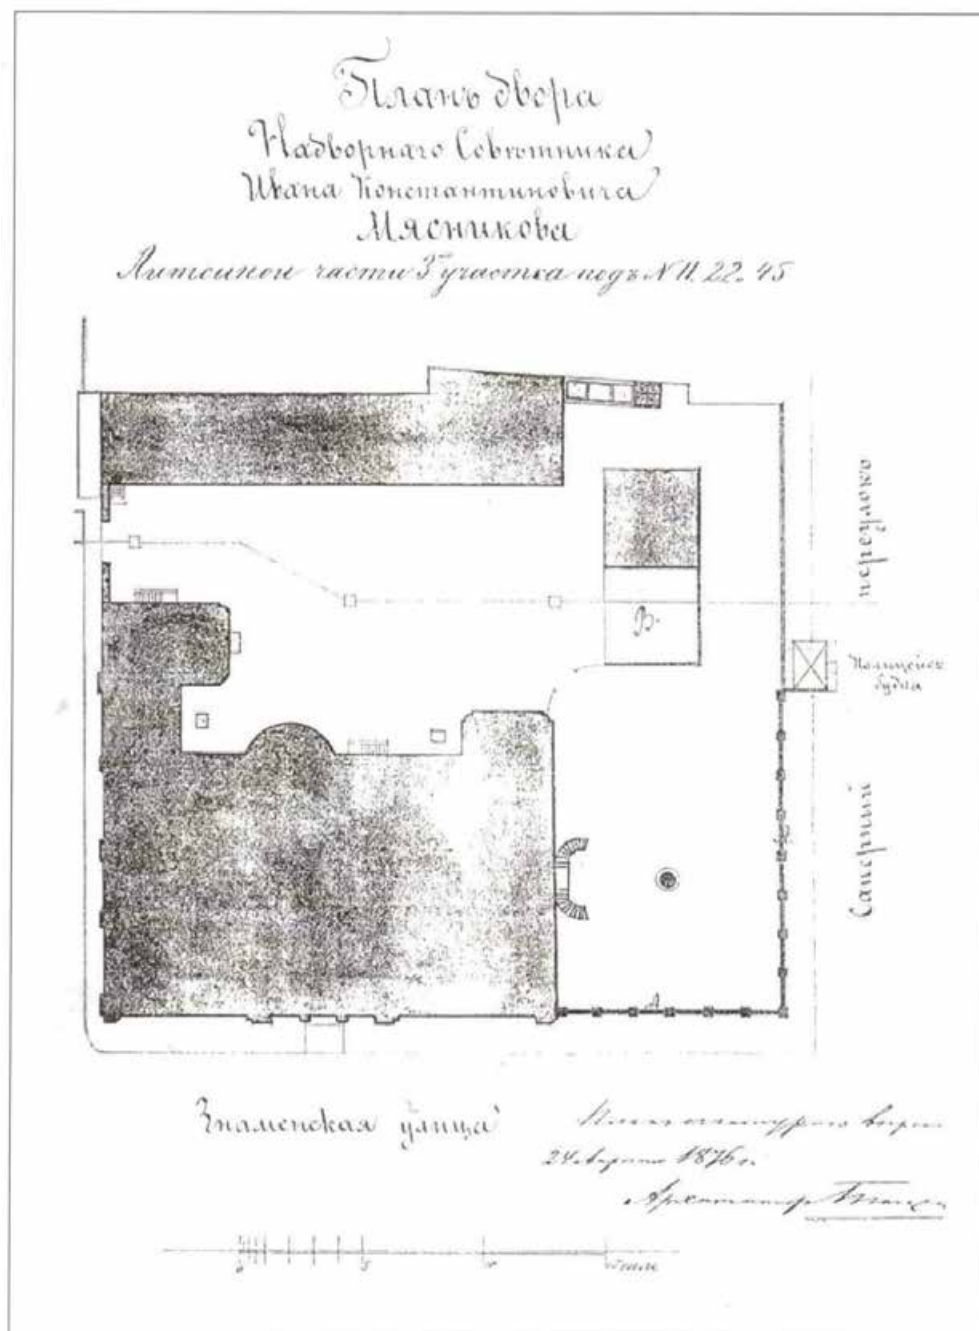 Планъ двора
Надворнаго Совѣтника
Ивана Константиновича
Мясникова
Литейной части 3 участка подъ N 11. 22. 45
переулокъ
В.
Полицейск.
будка
Саперный
Знаменская улица
1876 г.
Архитекторъ
0 5